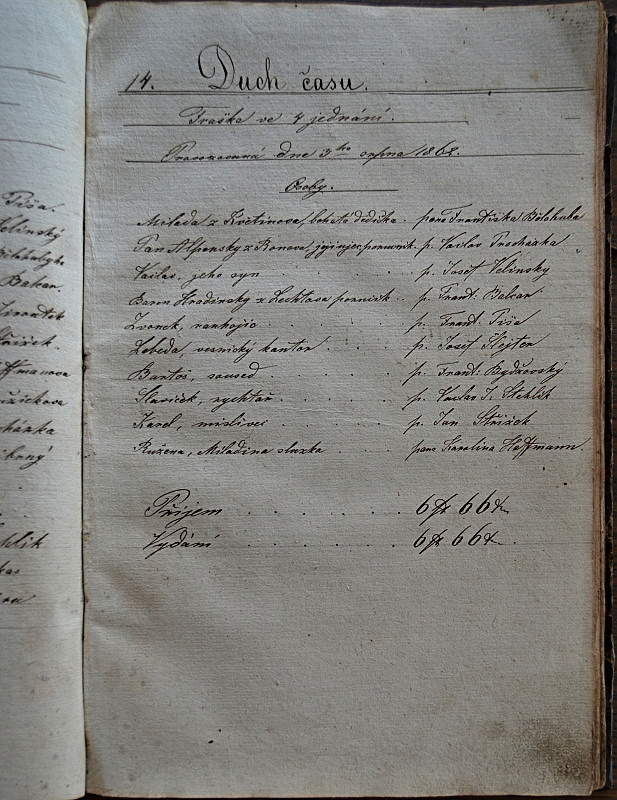 Tůša.
Velinský
Balcar.
Střížek.
14. Duch času.
Fraška ve 4 jednání.
Provozovaná dne 3ho srpna 1862.
Osoby.
Milada z Květinova, bohatá dědička. panna Františka Bělohubá
Pan Alpenský z Ronova, její ujec, poručník. p. Václav Procházka
Václav, jeho syn . . . p. Josef Velinský
Baron Hradinský z p. Frant. Balcar
Zvonek, p. Frant. Tůša
Lebeda, vesnický kantor . . . p. Josef
Bartoš, soused . . . p. Frant. Bydžovský
Slavíček, rychtář . . . p. Václav J. Stehlík
Karel, myslivec . . . p. Jan Střížek
Ružena, Miladina služka . . . panna Karolina Hoffmann.
Příjem . . . 6 zl 66 kr
Vydání . . . 6 zl 66 kr.